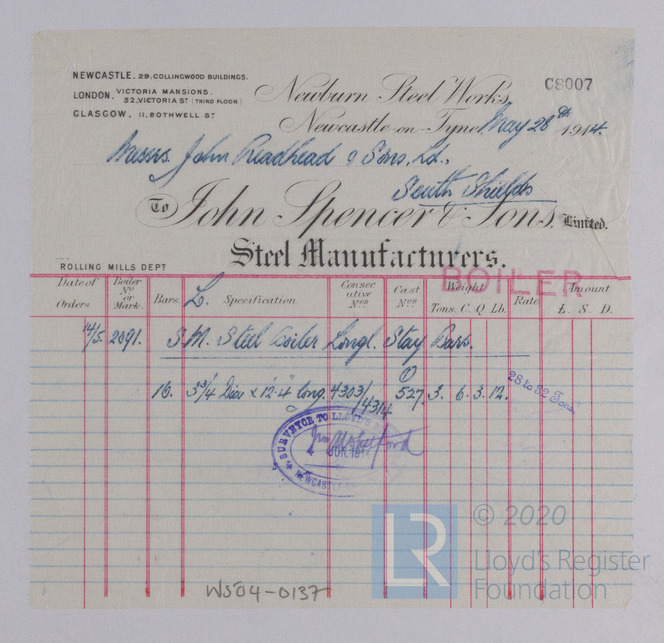 NEWCASTLE. 29, COLLINGWOOD BUILDINGS.
LONDON. VICTORIA MANSIONS.
32, VICTORIA ST (THIRD FLOOR)
GLASGOW. 11, BOTHWELL ST
C8007
Newburn Steel Works,
Newcastle-on-Tyne May 28th 1914.
Messrs. John Readhead & Sons, Ld.,
South Shields
To John Spencer & Sons, Limited.
Steel Manufacturers.
ROLLING MILLS DEPT
BOILER
Date of Orders Boiler No or Mark. Bars L. Specification Consecutive Nos Cast Nos Weight Tons. C. Q. Lb. Rate Amount £. S. D.
14/5. 2091. S.M. Steel Boiler Longl. Stay Bars.
16. 5 3/4 Dia x 12'.4" long. 4303/4314 527. 3. 6. 3. 12.
28 to 32 Tons
SURVEYOR TO LLOYD'S
JUN. 19
NEWCASTLE
WS04-0137
LR
© 2020
Lloyd's Register
Foundation